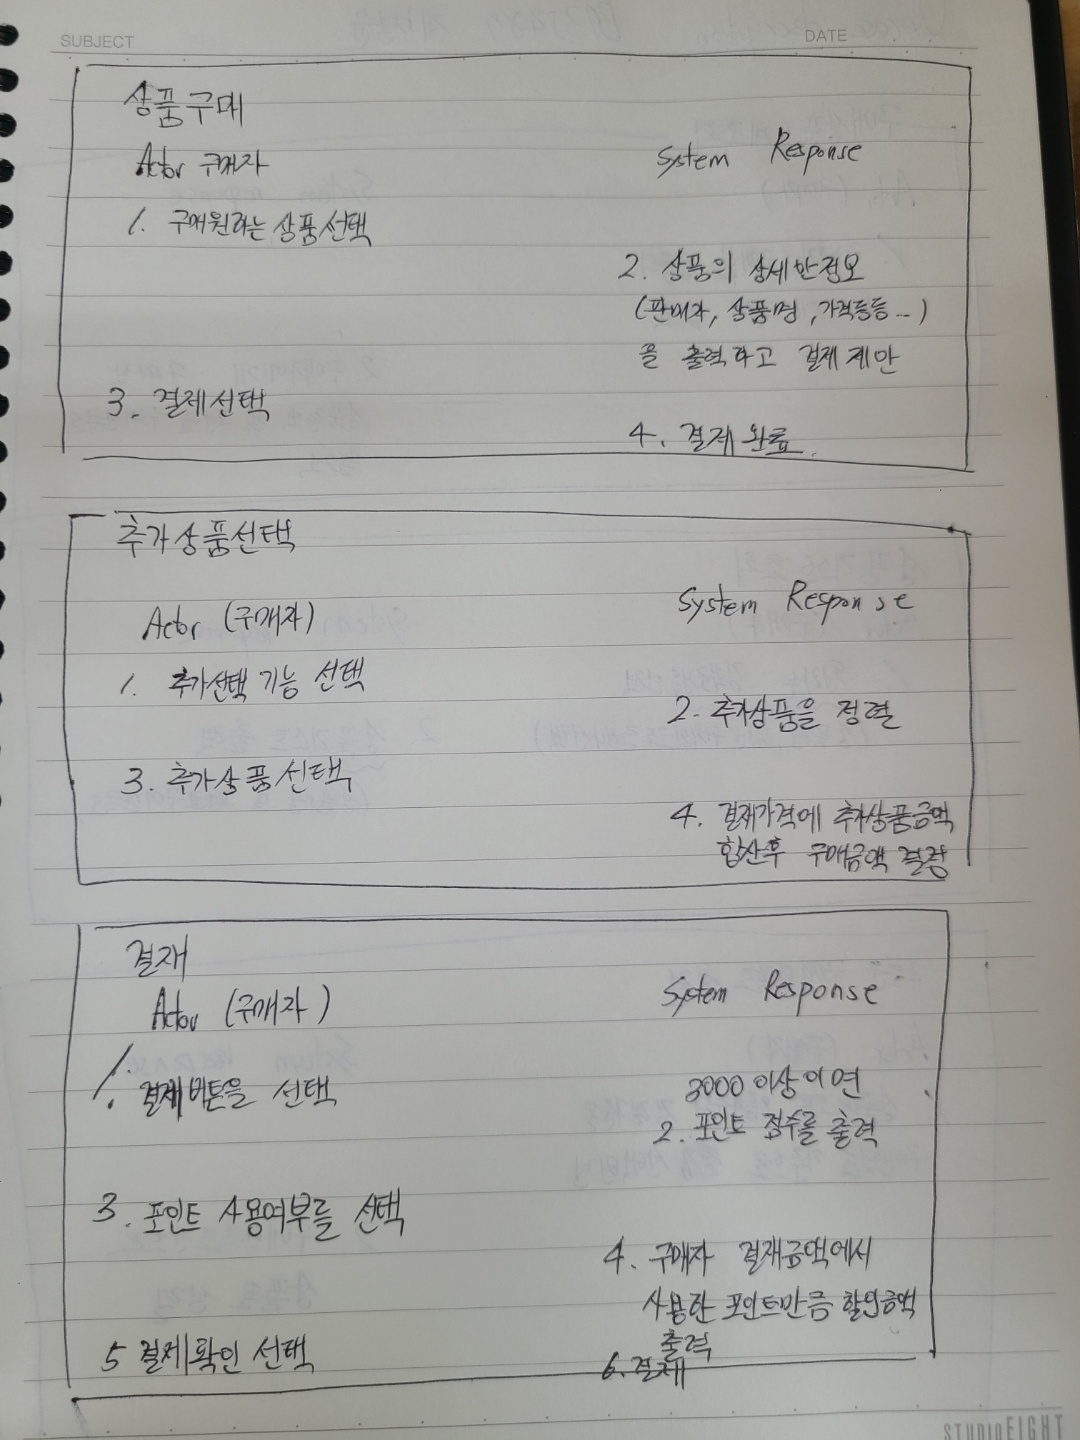 SUBJECT
DATE
상품구매
Actor 구매자
System Response
1. 구매원하는 상품선택
2. 상품의 상세한정보
(판매자, 상품명, 가격등등...)
을 출력하고 결제 제안
3. 결제선택
4. 결제 완료.
추가상품선택
Actor (구매자)
System Response
1. 추가선택 기능 선택
2. 추가상품을 정렬
3. 추가상품선택
4. 결재가격에 추가상품금액
합산후 구매금액 결정
결재
Actor (구매자)
System Response
1. 결제버튼을 선택
3000 이상이면
2. 포인트 점수를 출력
3. 포인트 사용여부를 선택
4. 구매자 결재금액에서
사용한 포인트만큼 할인금액
출력
5 결제확인 선택
6. 결제
STUDIO EIGHT